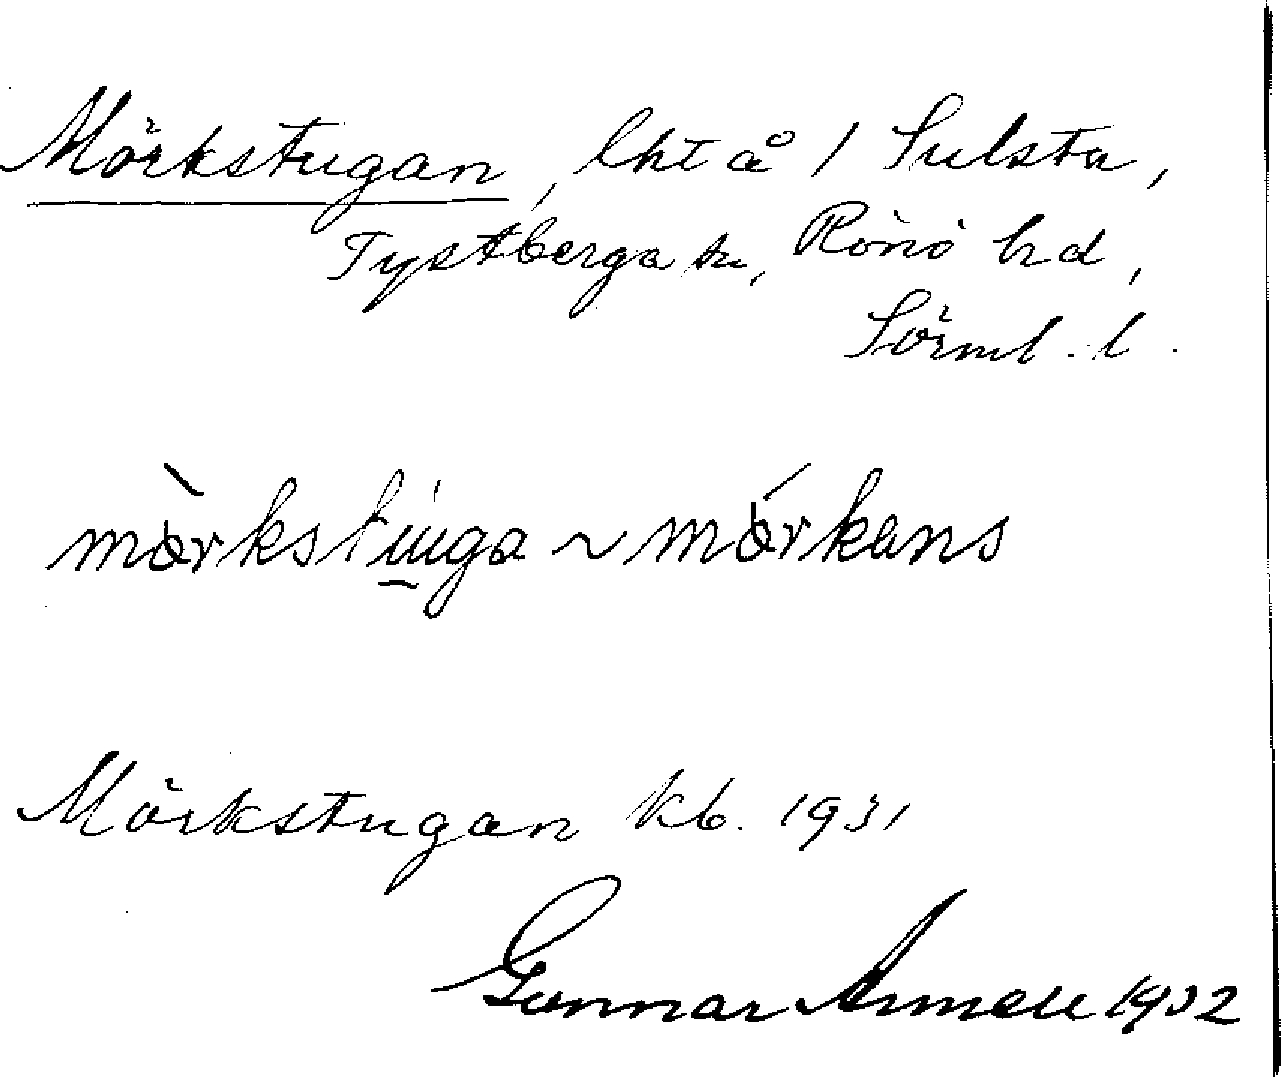 Mörkstugan, lht å 1 Sulsta,
Tystberga sn, Rönö hd,
Sörml. l.
mörkstuga ~ mörkans
Mörkstugan kb. 1931
Gunnar Armell 1932